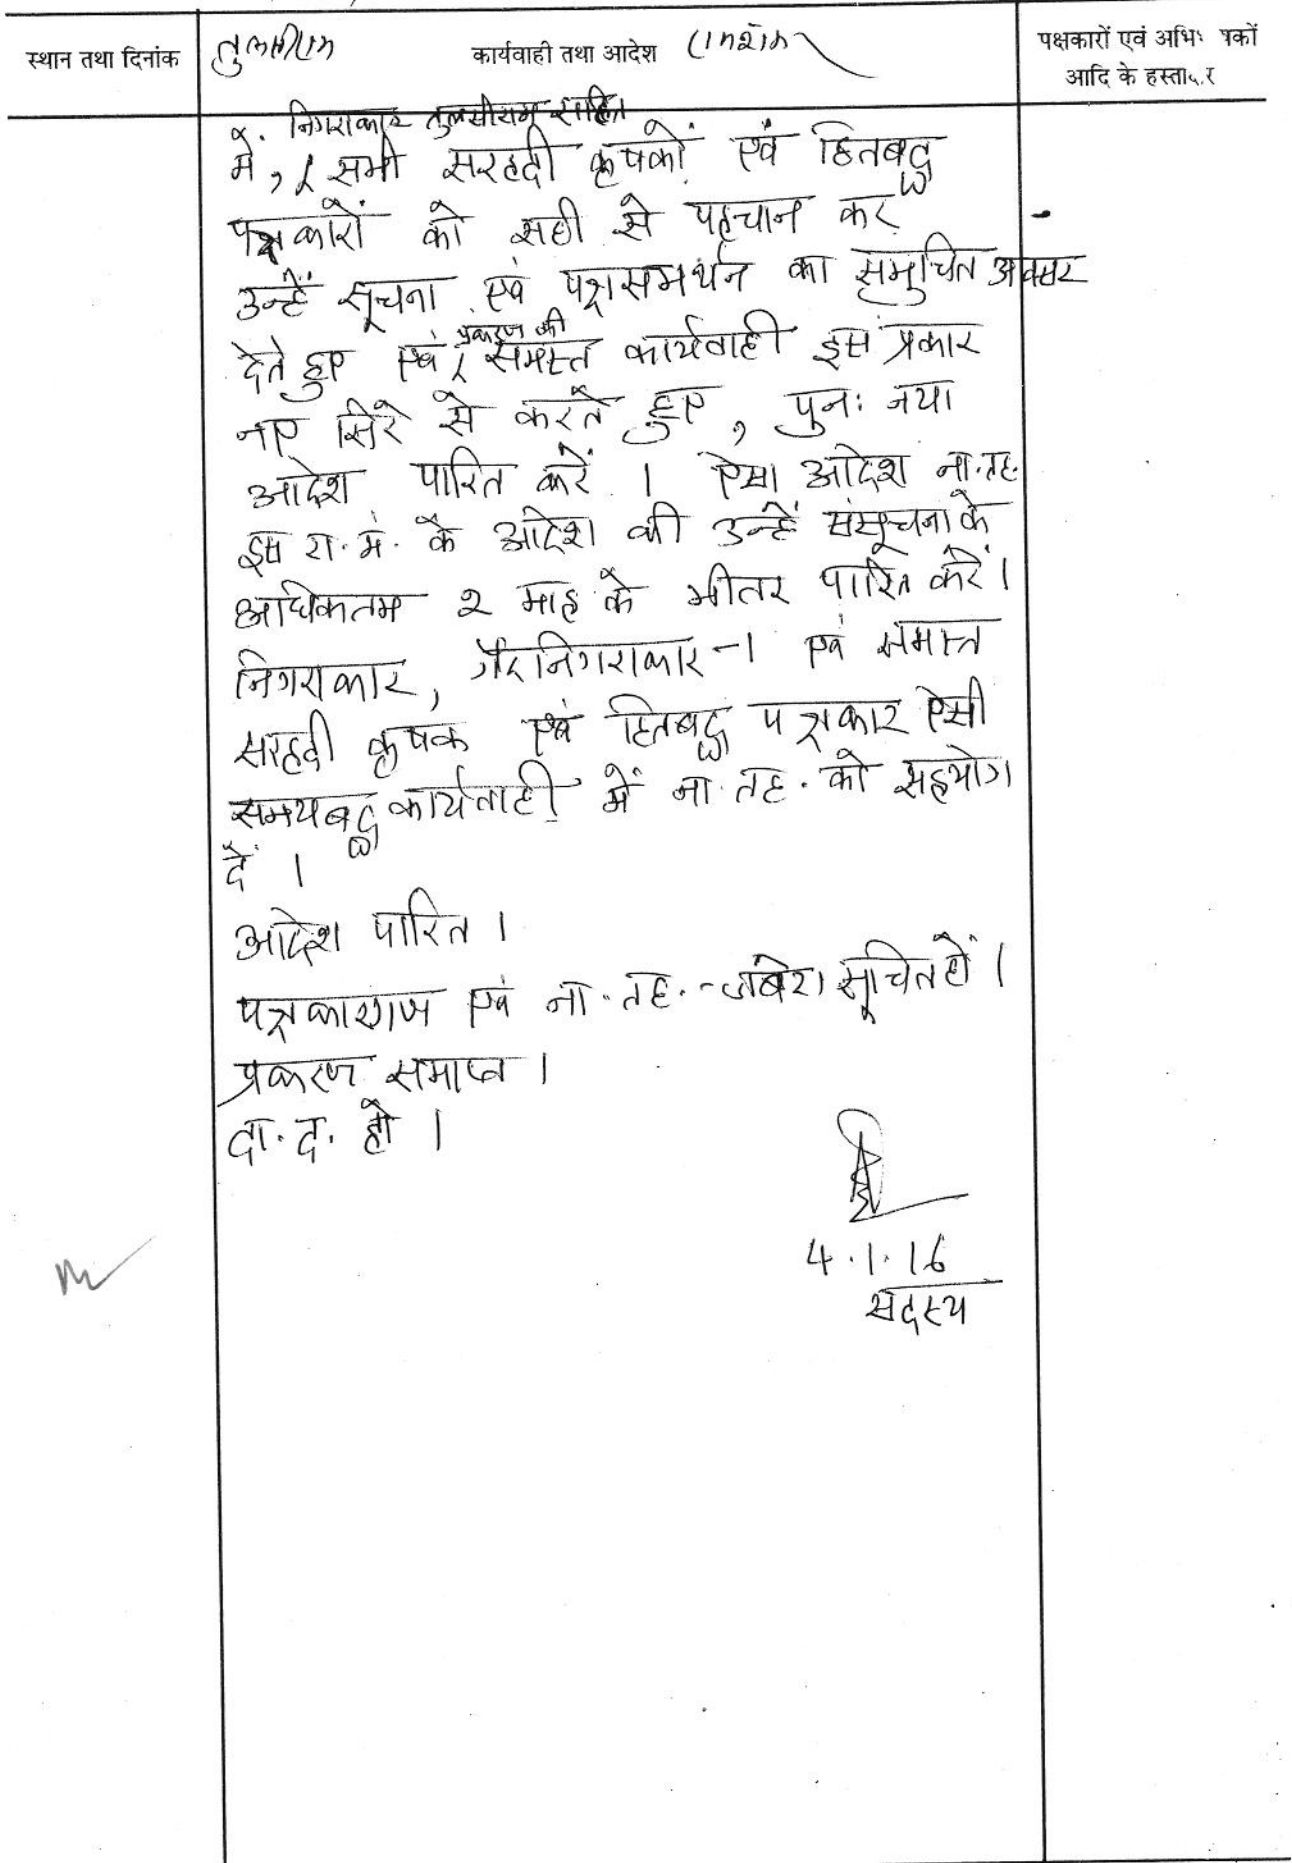 स्थान तथा दिनांक
तुलसीराम कार्यवाही तथा आदेश
पक्षकारों एवं अभि पकों
आदि के हस्ता र
निगराकार तुलसीराम सहित
में, सभी सरहदी कृषकों एवं हितबद्ध
पक्षकारों को सही से पहचान कर
उन्हें सूचना एवं पक्षसमर्थन का समुचित अवसर
प्रकरण की
देते हुए एवं समस्त कार्यवाही इस प्रकार
नए सिरे से करते हुए, पुनः नया
आदेश पारित करें । ऐसा आदेश ना.तह.
इस रा.मं. के आदेश की उन्हें संसूचना के
अधिकतम 2 माह के भीतर पारित करें।
निगराकार, गैरनिगराकार-1 एवं समस्त
सरहदी कृषक एवं हितबद्ध पक्षकार ऐसी
समयबद्ध कार्यवाही में ना.तह. को सहयोग
दें ।
आदेश पारित ।
पक्षकारगण एवं ना.तह.-जबेरा सूचित हों ।
प्रकरण समाप्त ।
दा.द. हो ।
4.1.16
सदस्य